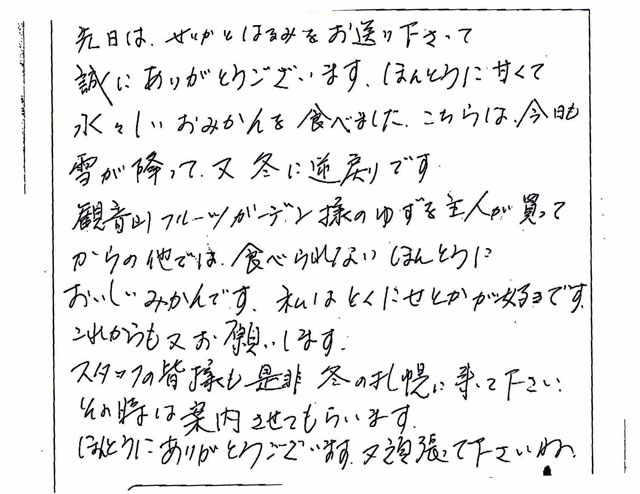 先日は、せとかとはるみをお送り下さって
誠にありがとうございます。ほんとうに甘くて
水々しいおみかんを食べました。こちらは、今日も
雪が降って、又冬に逆戻りです
観音山フルーツガーデン様のゆずを主人が買って
からの他では、食べられないほんとうに
おいしいみかんです。私はとくにせとかが好きです。
これからも又お願いします。
スタッフの皆様も是非冬の札幌に来て下さい
その時は案内させてもらいます。
ほんとうにありがとうございます。又頑張って下さいね。